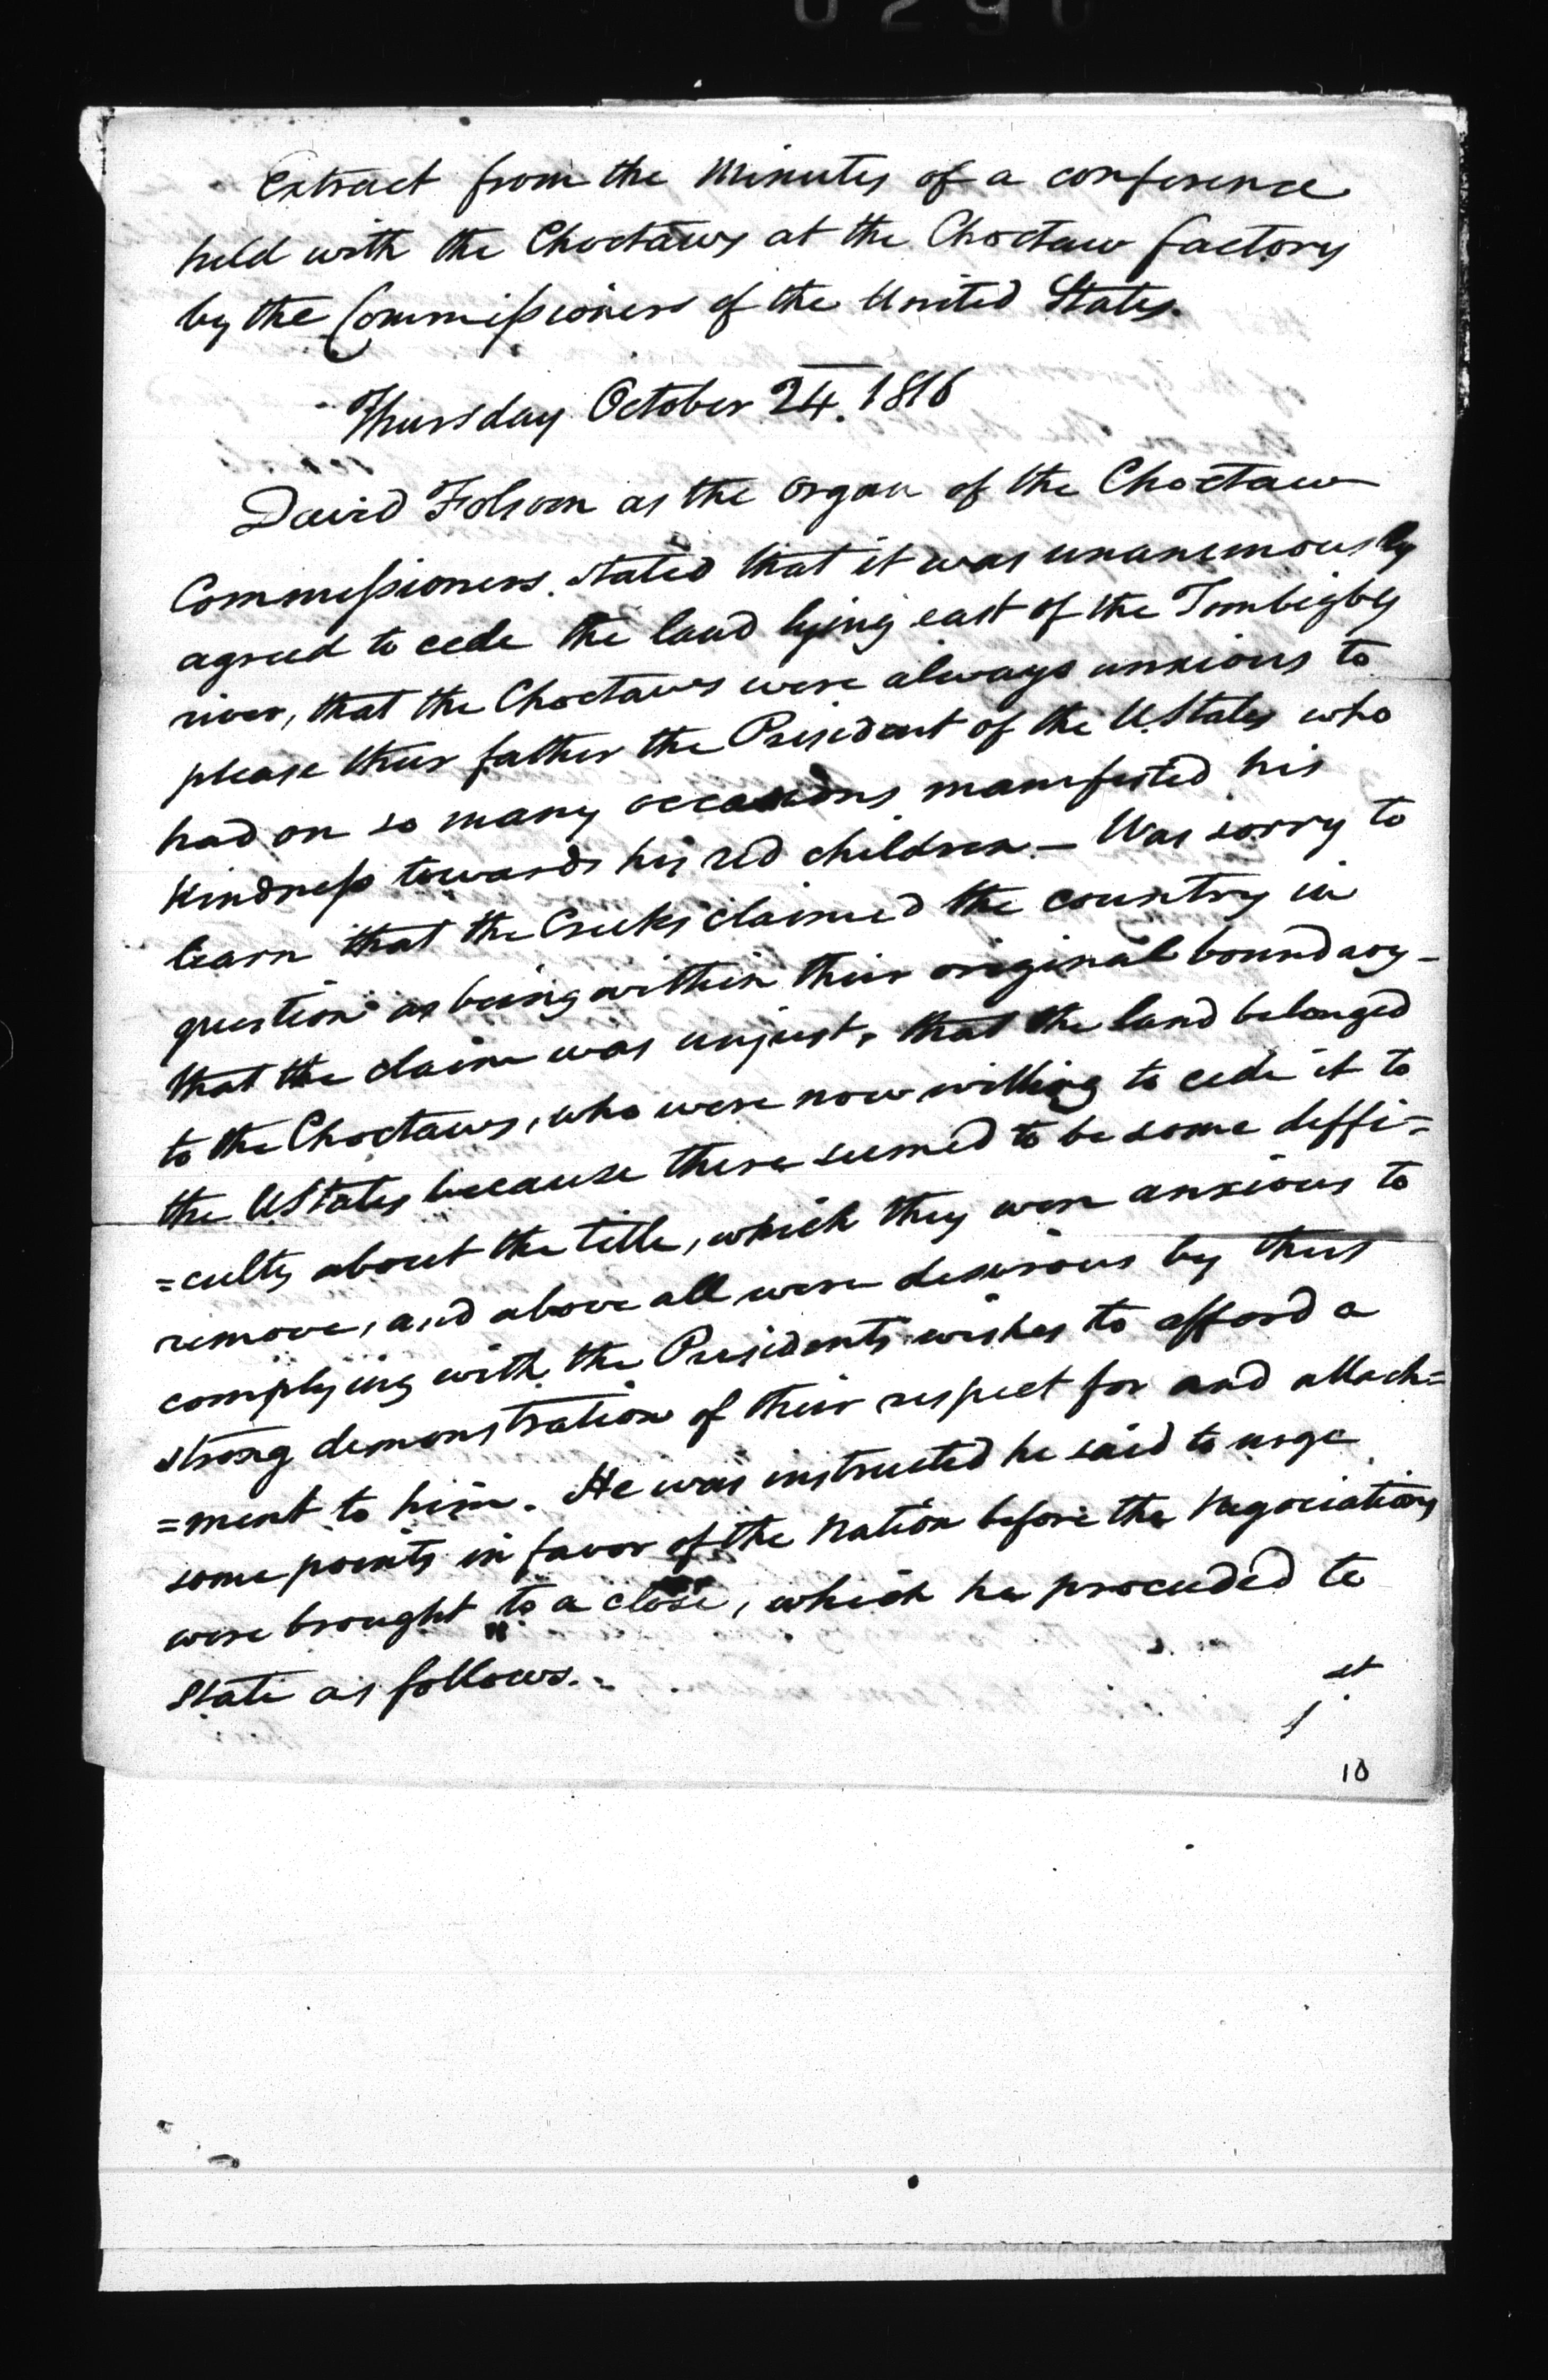 Extract from the Minutes of a conference
held with the Choctaws at the Choctaw factory
by the Commissioners of the United States.
Thursday October 24. 1816
David Folsom as the organ of the Choctaw
Commissioners. stated that it was unanimously
agreed to cede the land lying east of the Tombigby
river, that the Choctaws were always anxious to
please their father the President of the U.States who
had on so many occasions manifested his
kindness towards his red children. — Was sorry to
learn that the Creeks claimed the country in
question as being within their original boundary -
that the claim was unjust, that the land belonged
to the Choctaws, who were now willing to cede it to
the UStates because there seemed to be some diffi=
=culty about the title, which they were anxious to
remove, and above all were desirous by thus
complying with the Presidents wishes to afford a
strong demonstration of their respect for and attach=
=ment to him. He was instructed he said to urge
some points in favor of the Nation before the Negociations
were brought to a close, which he proceeded to
State as follows. -
1st
10